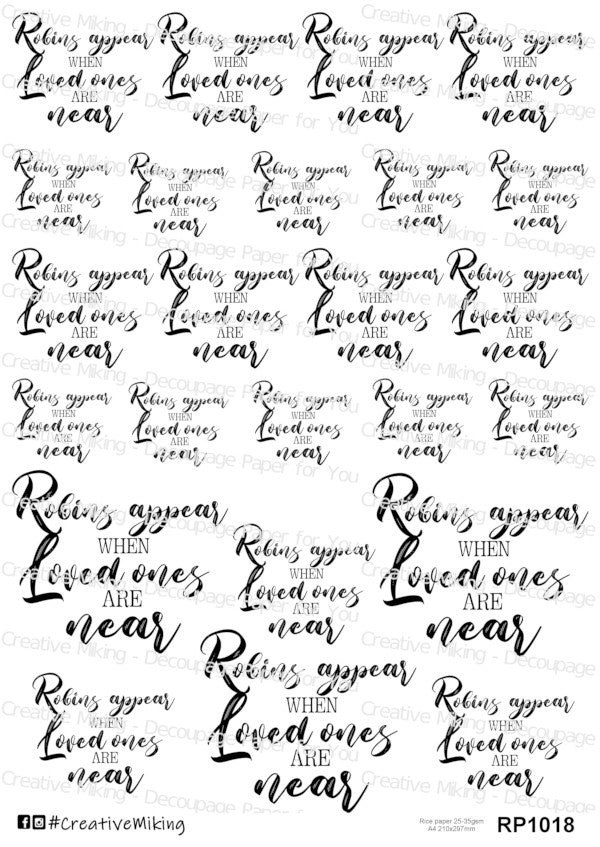 Robins appear Robins appear Robins appear Robins appear
WHEN WHEN WHEN WHEN
Loved ones Loved ones Loved ones Loved ones
ARE ARE ARE ARE
near near near near
Robins appear Robins appear Robins appear Robins appear Robins appear
WHEN WHEN WHEN WHEN WHEN
Loved ones Loved ones Loved ones Loved ones Loved ones
ARE ARE ARE ARE ARE
near near near near near
Robins appear Robins appear Robins appear Robins appear
WHEN WHEN WHEN WHEN
Loved ones Loved ones Loved ones Loved ones
ARE ARE ARE ARE
near near near near
Robins appear Robins appear Robins appear Robins appear Robins appear
WHEN WHEN WHEN WHEN WHEN
Loved ones Loved ones Loved ones Loved ones Loved ones
ARE ARE ARE ARE ARE
near near near near near
Robins appear
WHEN
Loved ones
ARE
near
Robins appear
WHEN
Loved ones
ARE
near
Robins appear
WHEN
Loved ones
ARE
near
Robins appear
WHEN
Loved ones
ARE
near
Robins appear
WHEN
Loved ones
ARE
near
Robins appear
WHEN
Loved ones
ARE
near
#CreativeMiking
Rice paper 25-35gsm
A4 210x297mm
RP1018
Creative Miking - Decoupage Paper for You